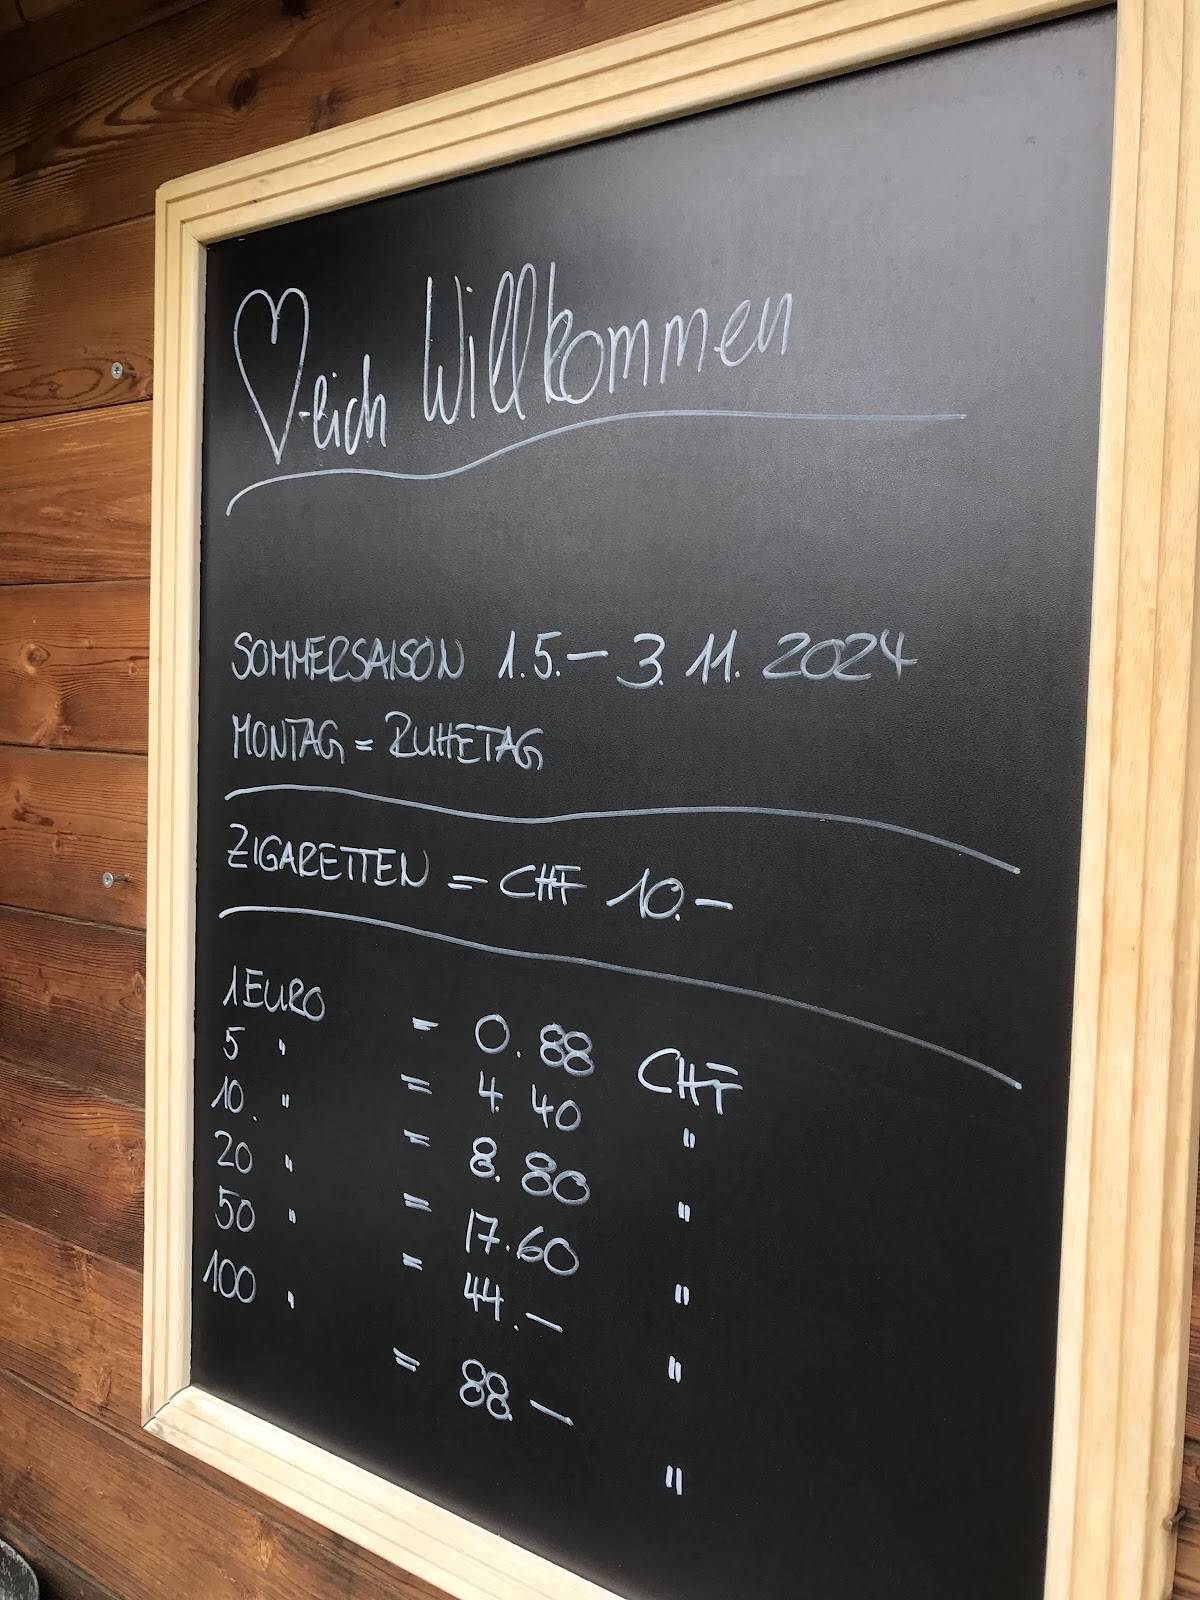 ♡-lich Willkommen
SOMMERSAISON 1.5.– 3.11.2024
MONTAG = RUHETAG
ZIGARETTEN = CHF 10.–
1 EURO = 0.88 CHF
5 " = 4.40 "
10. " = 8.80 "
20 " = 17.60 "
50 " = 44.– "
100 " = 88.– "